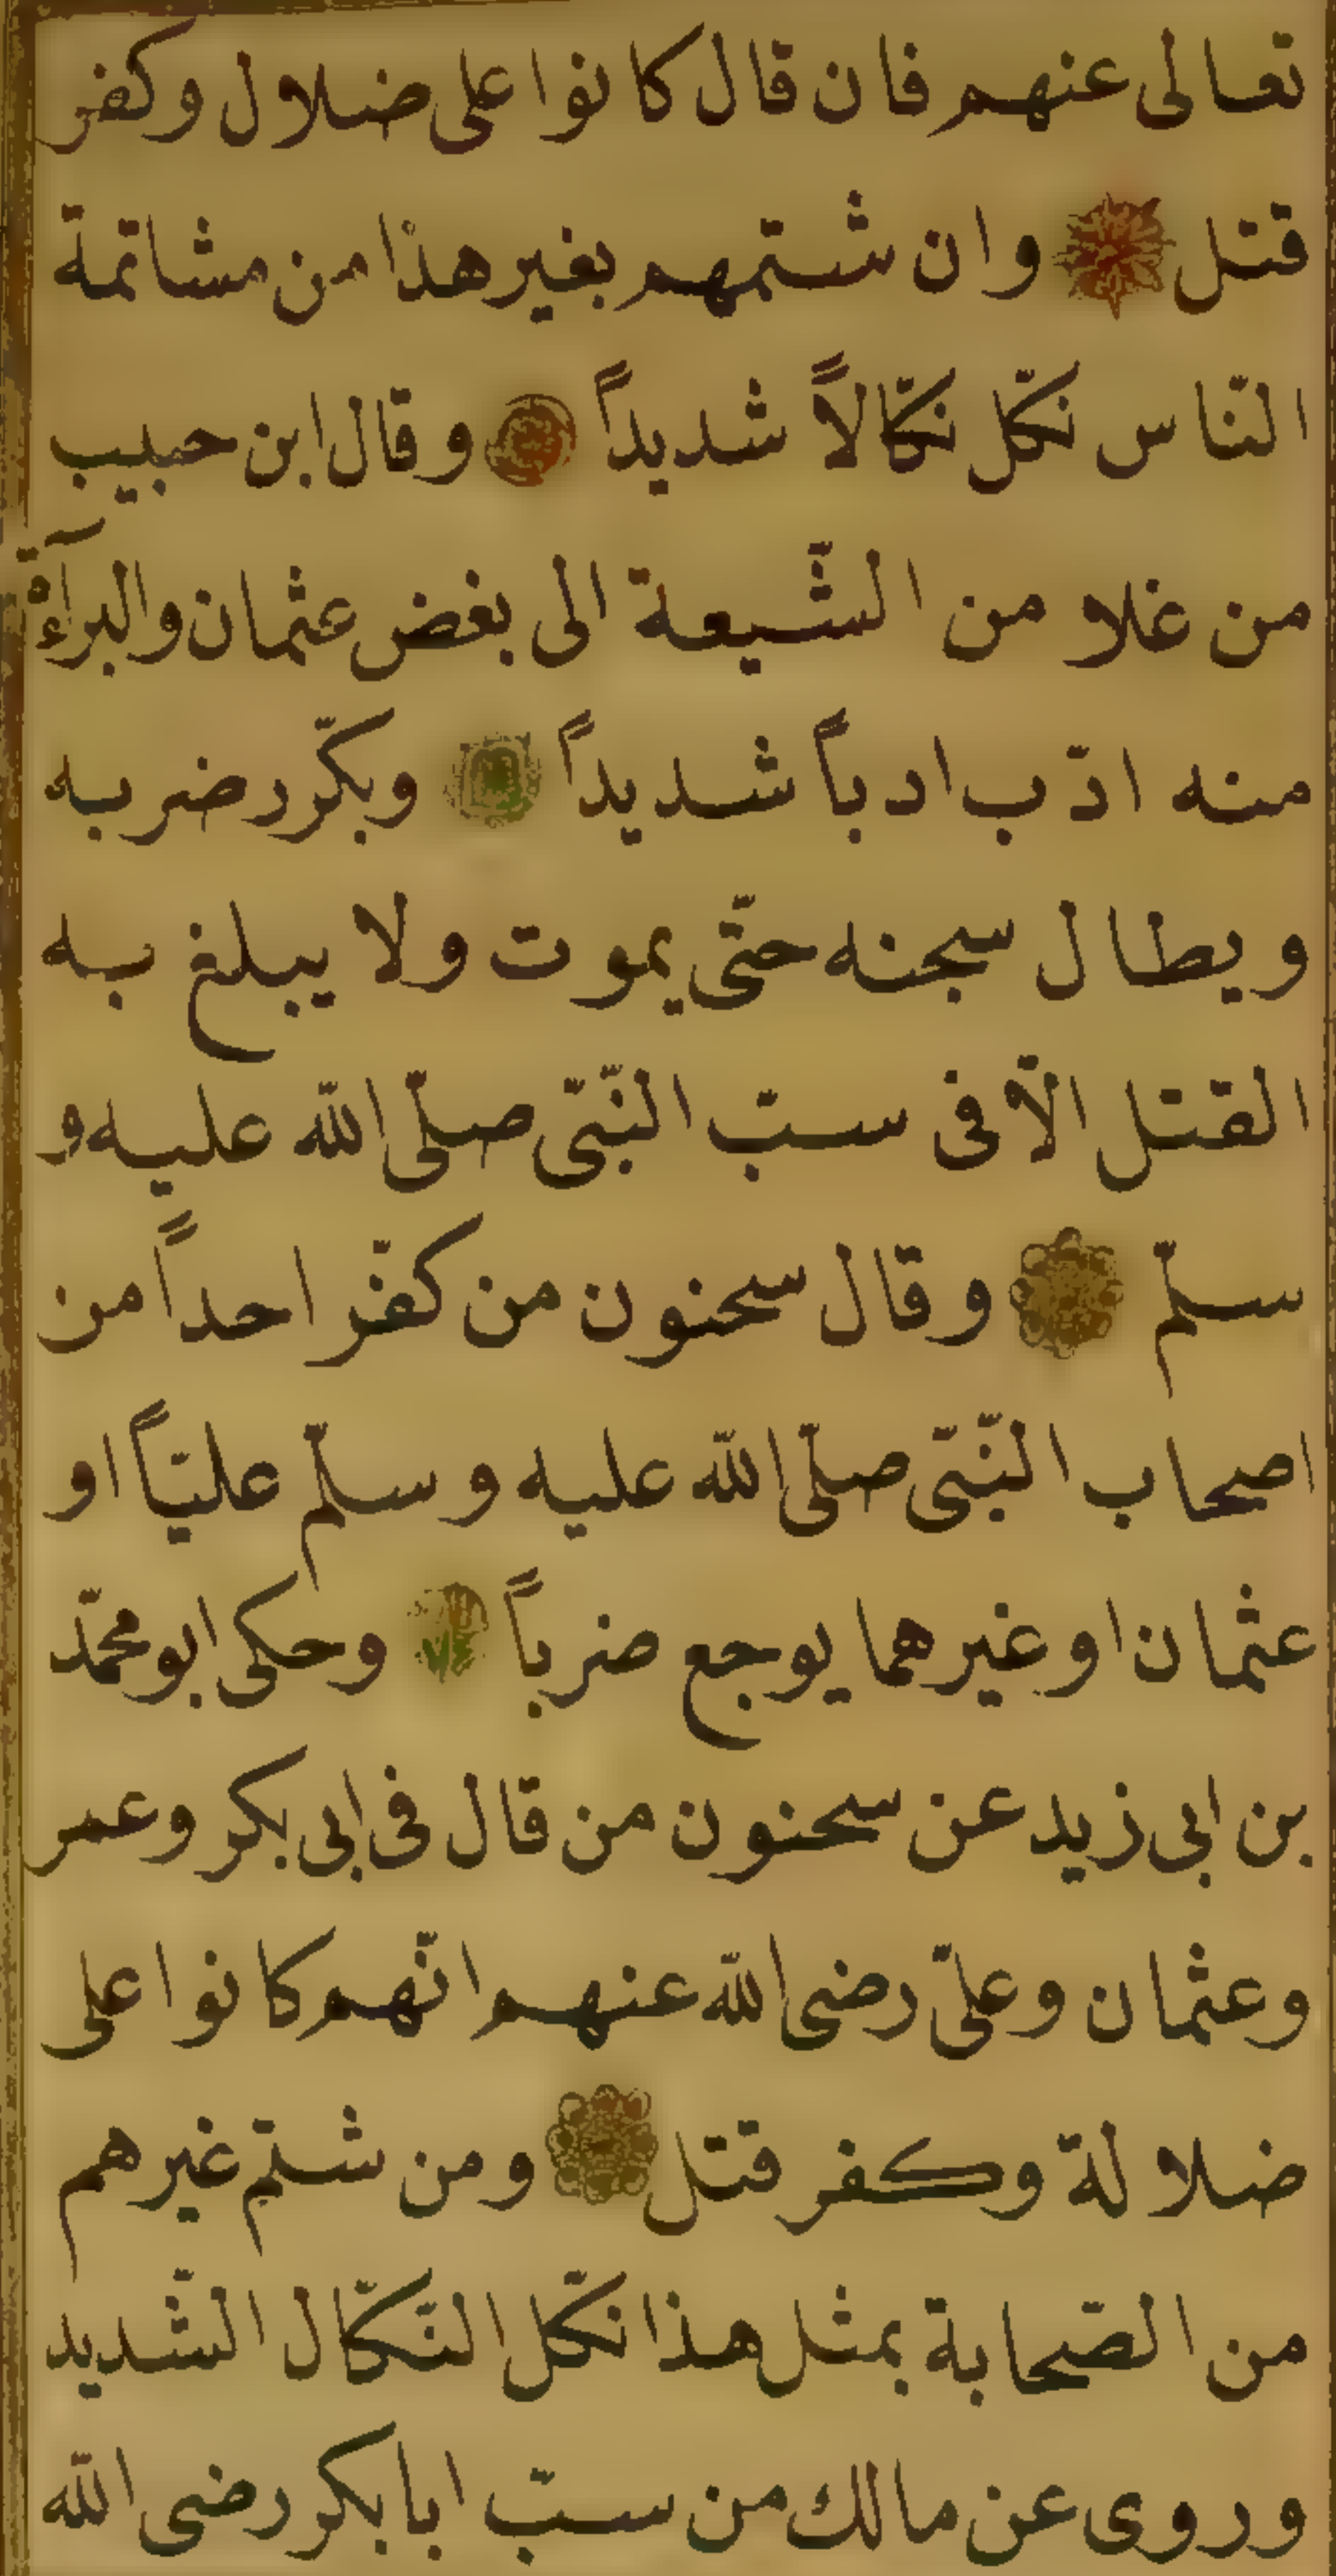 تعالى عنهم فان قال كانوا على ضلال وكفر
قتل وان شتمهم بغير هذا من مشاتمة
النّاس نكّل نكّالاً شديداً وقال ابن حبيب
من غلا من الشّيعة الى بغض عثمان والبرآءة
منه ادّب ادباً شديداً ويكرّر ضربه
ويطال سجنه حتّى يموت ولا يبلغ به
القتل الاّ فى سبّ النّبىّ صلّى الله عليه و
سلّم وقال سحنون من كفّر احداً من
اصحاب النّبىّ صلّى الله عليه وسلّم عليّاً او
عثمان او غيرهما يوجع ضرباً وحكى ابو محمّد
بن ابى زيد عن سحنون من قال فى ابى بكر وعمر
وعثمان وعلىّ رضى الله عنهم انّهم كانوا على
ضلالة وكفر قتل ومن شتم غيرهم
من الصّحابة بمثل هذا نكّل النّكّال الشّديد
وروى عن مالك من سبّ ابا بكر رضى الله